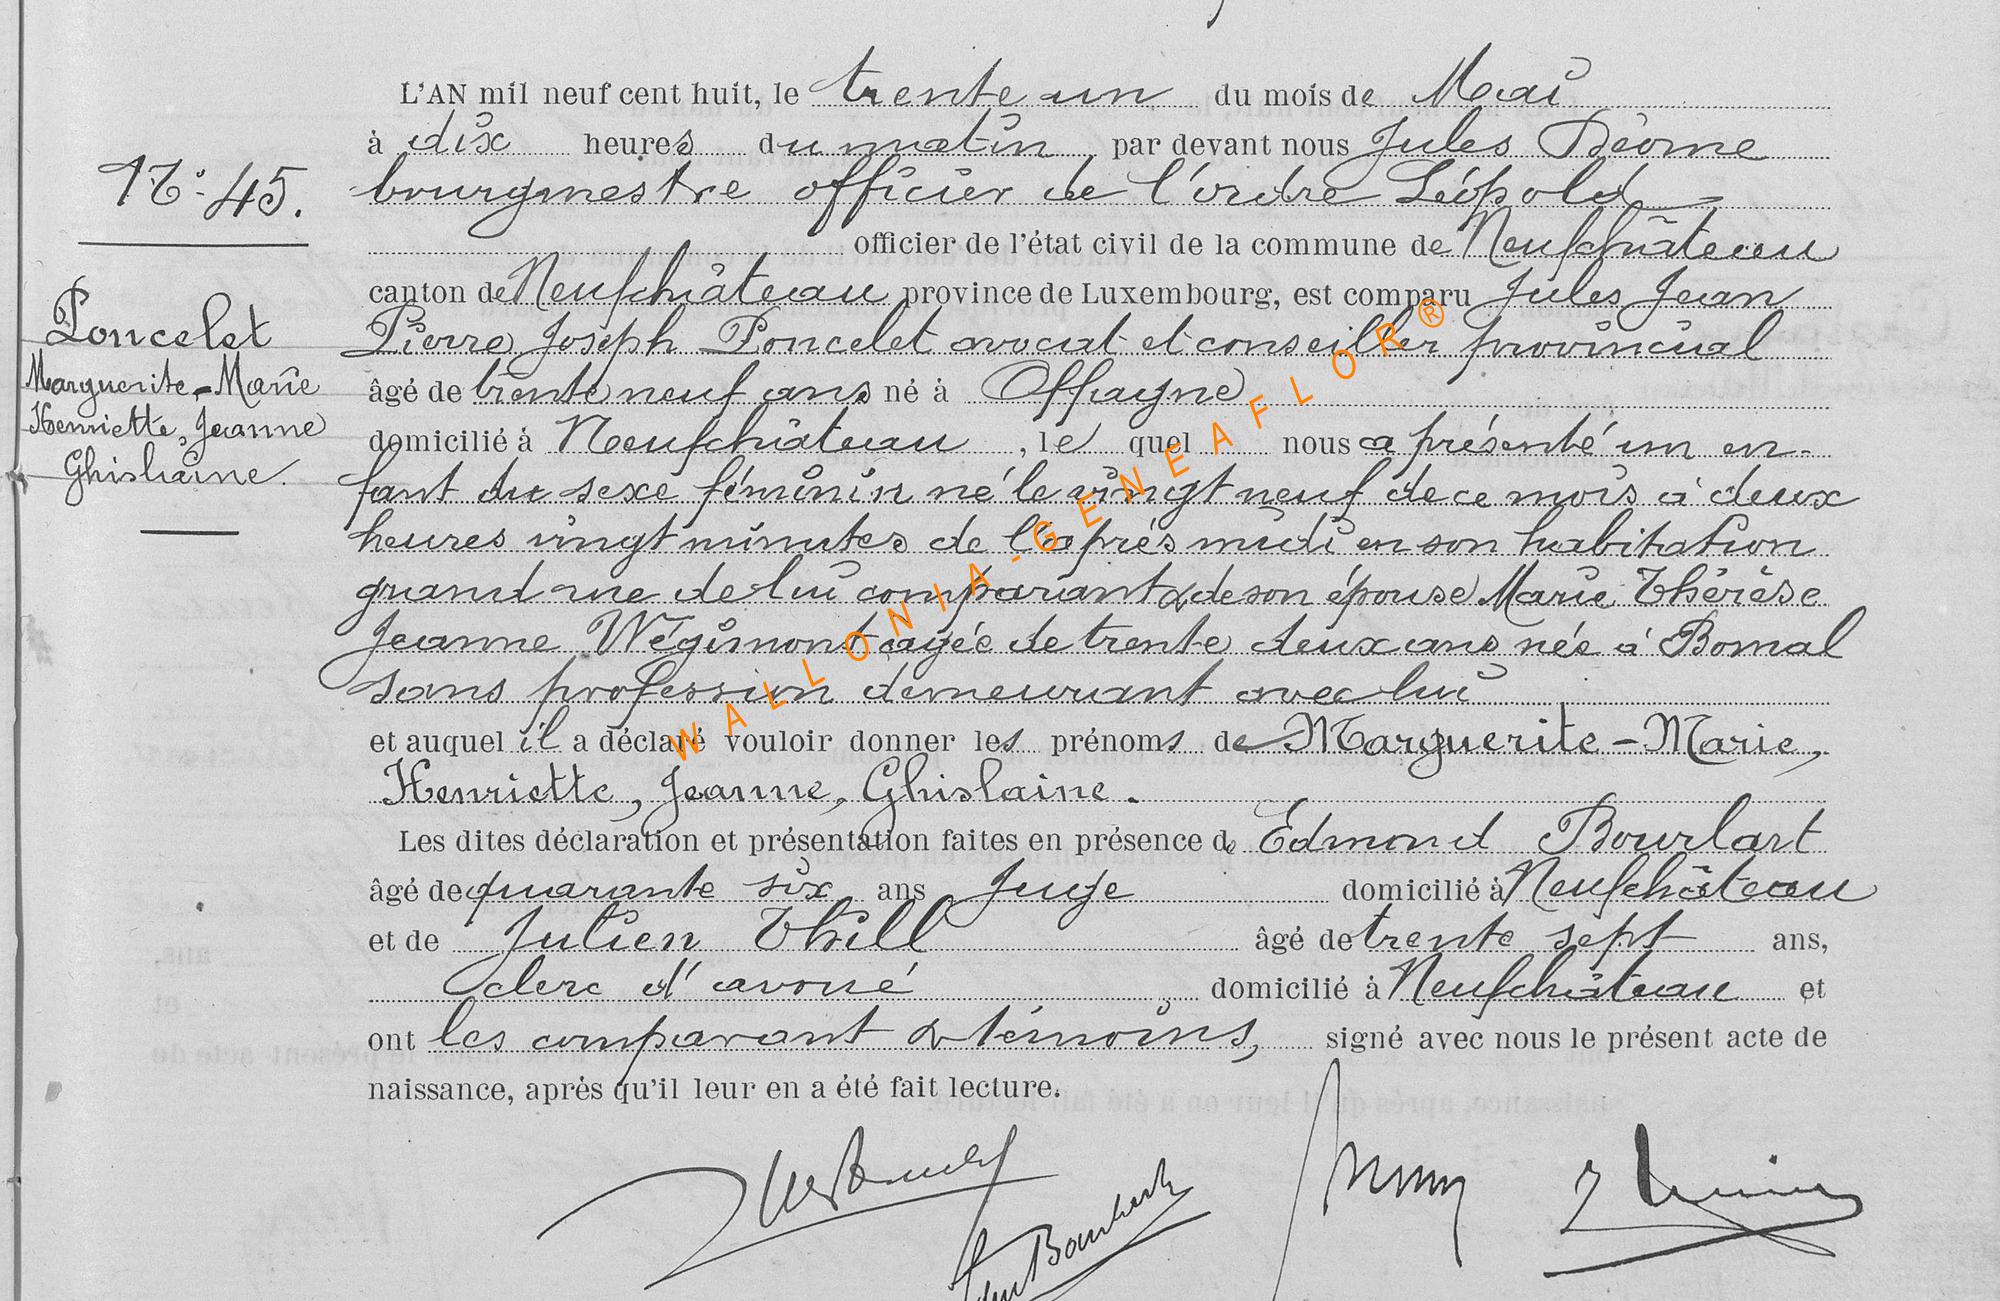 L'AN mil neuf cent huit, le trente un du mois de Mai
à dix heures du matin, par devant nous Jules
N° 45.
bourgmestre officier de l'ordre Léopold
officier de l'état civil de la commune de Neufchâteau
canton de Neufchâteau province de Luxembourg, est comparu Jules Jean
Poncelet
Pierre Joseph Poncelet avocat et conseiller provincial
Marguerite-Marie
âgé de trente neuf ans né à Offagne
Henriette, Jeanne
domicilié à Neufchâteau, le quel nous a présenté un en-
Ghislaine.
fant du sexe féminin né le vingt neuf de ce mois à deux
heures vingt minutes de l'après midi en son habitation
grand rue de lui comparant & de son épouse Marie Thérèse
Jeanne Wégimont agée de trente deux ans née à Bomal
sans profession demeurant avec lui
et auquel il a déclaré vouloir donner les prénoms de Marguerite-Marie,
Henriette, Jeanne, Ghislaine.
Les dites déclaration et présentation faites en présence de Edmond Bourlart
âgé de quarante six ans Juge domicilié à Neufchâteau
et de Julien Thill âgé de trente sept ans,
clerc d'avoué, domicilié à Neufchâteau et
ont les comparant & témoins, signé avec nous le présent acte de
naissance, après qu'il leur en a été fait lecture.
WALLONIA-GENEAFLOR®